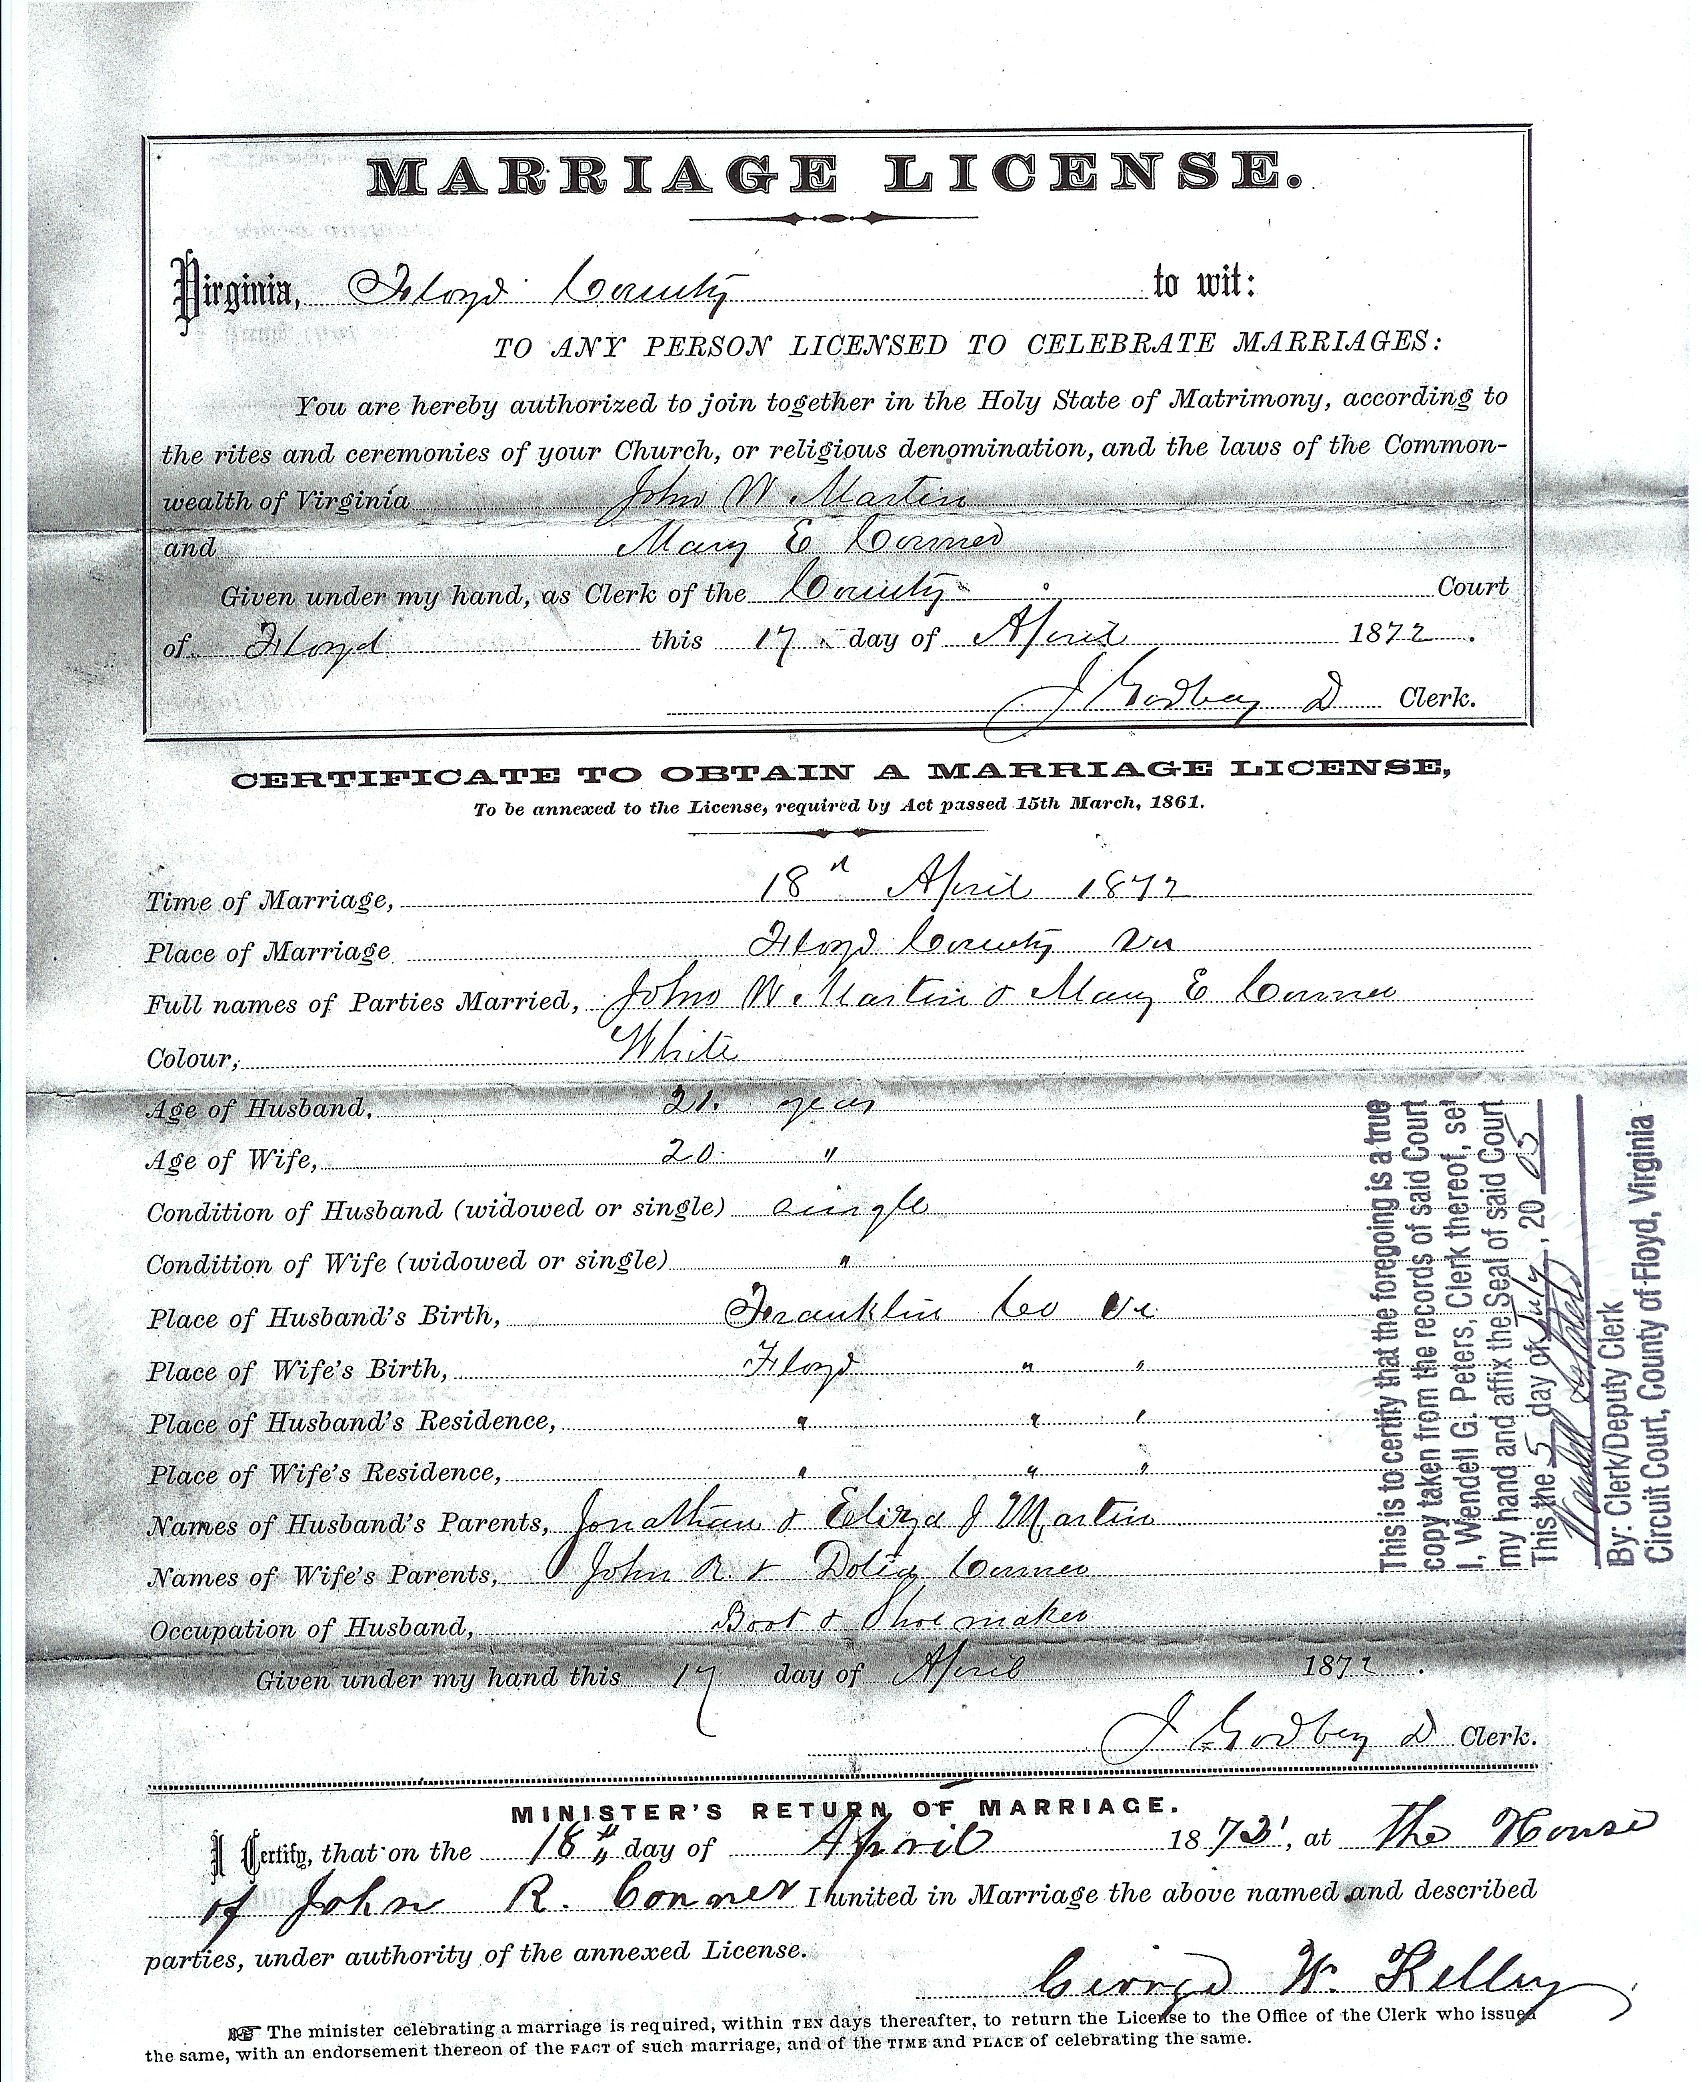 MARRIAGE LICENSE.
Virginia, Floyd County to wit:
TO ANY PERSON LICENSED TO CELEBRATE MARRIAGES:
You are hereby authorized to join together in the Holy State of Matrimony, according to
the rites and ceremonies of your Church, or religious denomination, and the laws of the Common-
wealth of Virginia John W. Martin
and Mary E Conner
Given under my hand, as Clerk of the County Court
of Floyd this 17 day of April 1872.
J Godbey D Clerk.
CERTIFICATE TO OBTAIN A MARRIAGE LICENSE,
To be annexed to the License, required by Act passed 15th March, 1861.
Time of Marriage, 18th April 1872
Place of Marriage Floyd County Va
Full names of Parties Married, John W. Martin & Mary E Conner
Colour, White
Age of Husband, 21. years
Age of Wife, 20. "
Condition of Husband (widowed or single) single
Condition of Wife (widowed or single) "
Place of Husband's Birth, Franklin Co Va
Place of Wife's Birth, Floyd " "
Place of Husband's Residence, " " "
Place of Wife's Residence, " " "
Names of Husband's Parents, Jonathan & Eliza J Martin
Names of Wife's Parents, John R. & Conner
Occupation of Husband, Boot & Shoe maker
Given under my hand this 17 day of April 1872.
J Godbey D Clerk.
MINISTER'S RETURN OF MARRIAGE.
I Certify, that on the 18th day of April 1872, at the House
of John R. Conner I united in Marriage the above named and described
parties, under authority of the annexed License.
George W. Kelley
☞ The minister celebrating a marriage is required, within TEN days thereafter, to return the License to the Office of the Clerk who issued
the same, with an endorsement thereon of the FACT of such marriage, and of the TIME and PLACE of celebrating the same.
This is to certify that the foregoing is a true
copy taken from the records of said Court
I, Wendell G. Peters, Clerk thereof, set
my hand and affix the Seal of said Court
This the 5 day of July, 20 05
Wendell G. Peters
By: Clerk/Deputy Clerk
Circuit Court, County of Floyd, Virginia